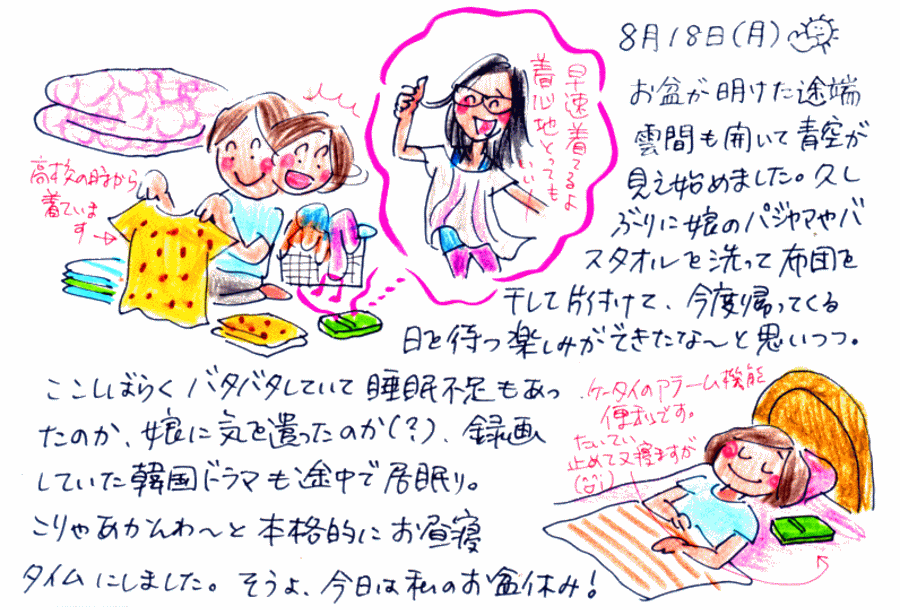 8月18日(月)
お盆が明けた途端
雲間も開いて青空が
見え始めました。久し
ぶりに娘のパジャマやバ
スタオルを洗って布団を
干して片付けて、今度帰ってくる
日を待つ楽しみができたな〜と思いつつ。
早速着てるよ
着心地とっても
いい!
高校の時から
着ていま
す
ここしばらくバタバタしていて睡眠不足もあっ
たのか、娘に気を遣ったのか(?)、録画
していた韓国ドラマも途中で居眠り。
こりゃあかんわ〜と本格的にお昼寝
タイムにしました。そうよ、今日は私のお盆休み!
ケータイのアラーム機能
便利です。
たいてい
止めて又寝ますが